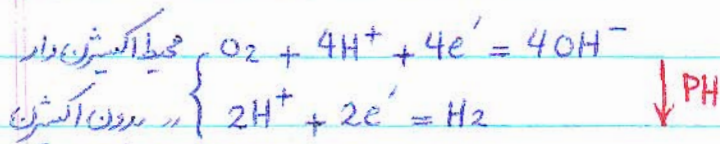 محیط اکسیژن دار { O2 + 4H+ + 4e' = 4OH-
" بدون اکسیژن { 2H+ + 2e' = H2
↓ PH